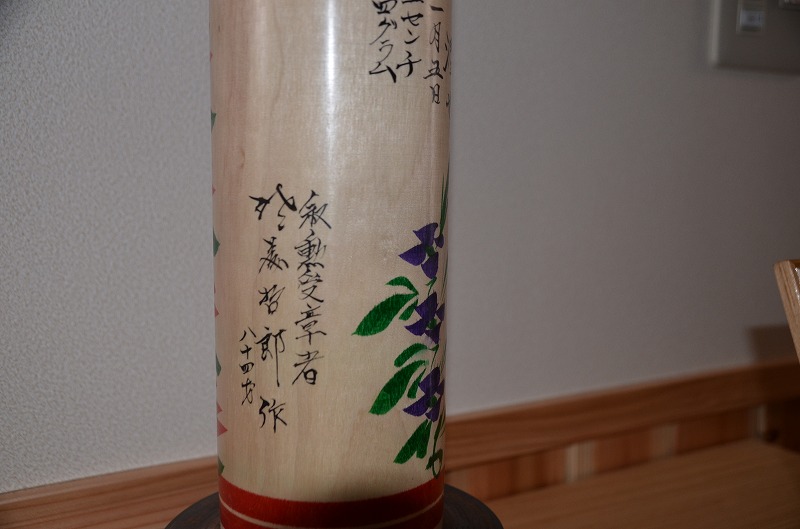 一月五日
センチ
四グラム
叙勲受章者
哲郎 作
八十四才